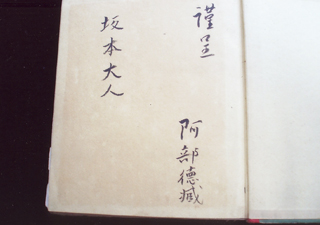 謹呈
坂本大人
阿部徳蔵